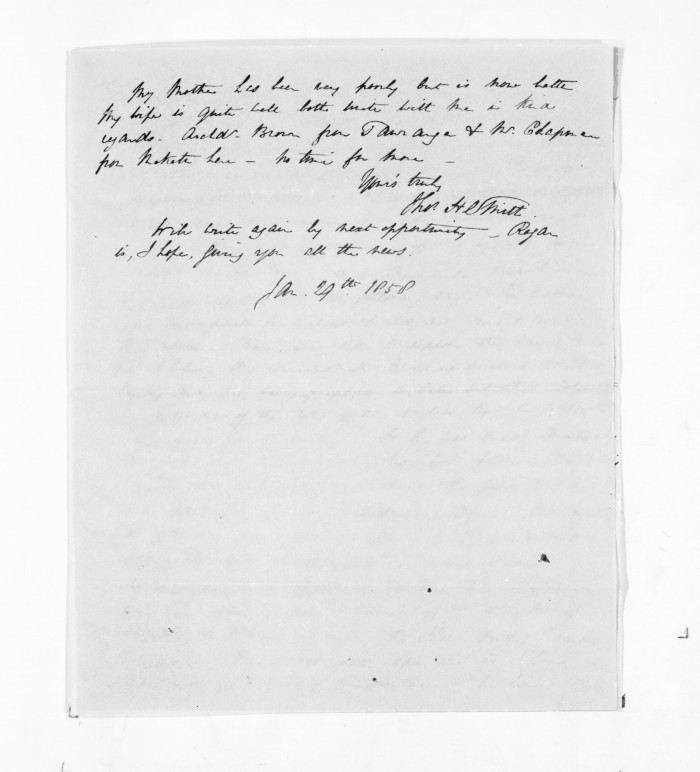 My Mother has been very poorly but is now better
My wife is quite well both unite with me in kind
regards. Archdn. Brown from Tauranga & Mr. Chapman
from Maketu here — no time for more —
Yours truly
Thos. H Smith.
Will write again by next opportunity — Rogan
is, I hope, giving you all the news.
Jan. 29th. 1858